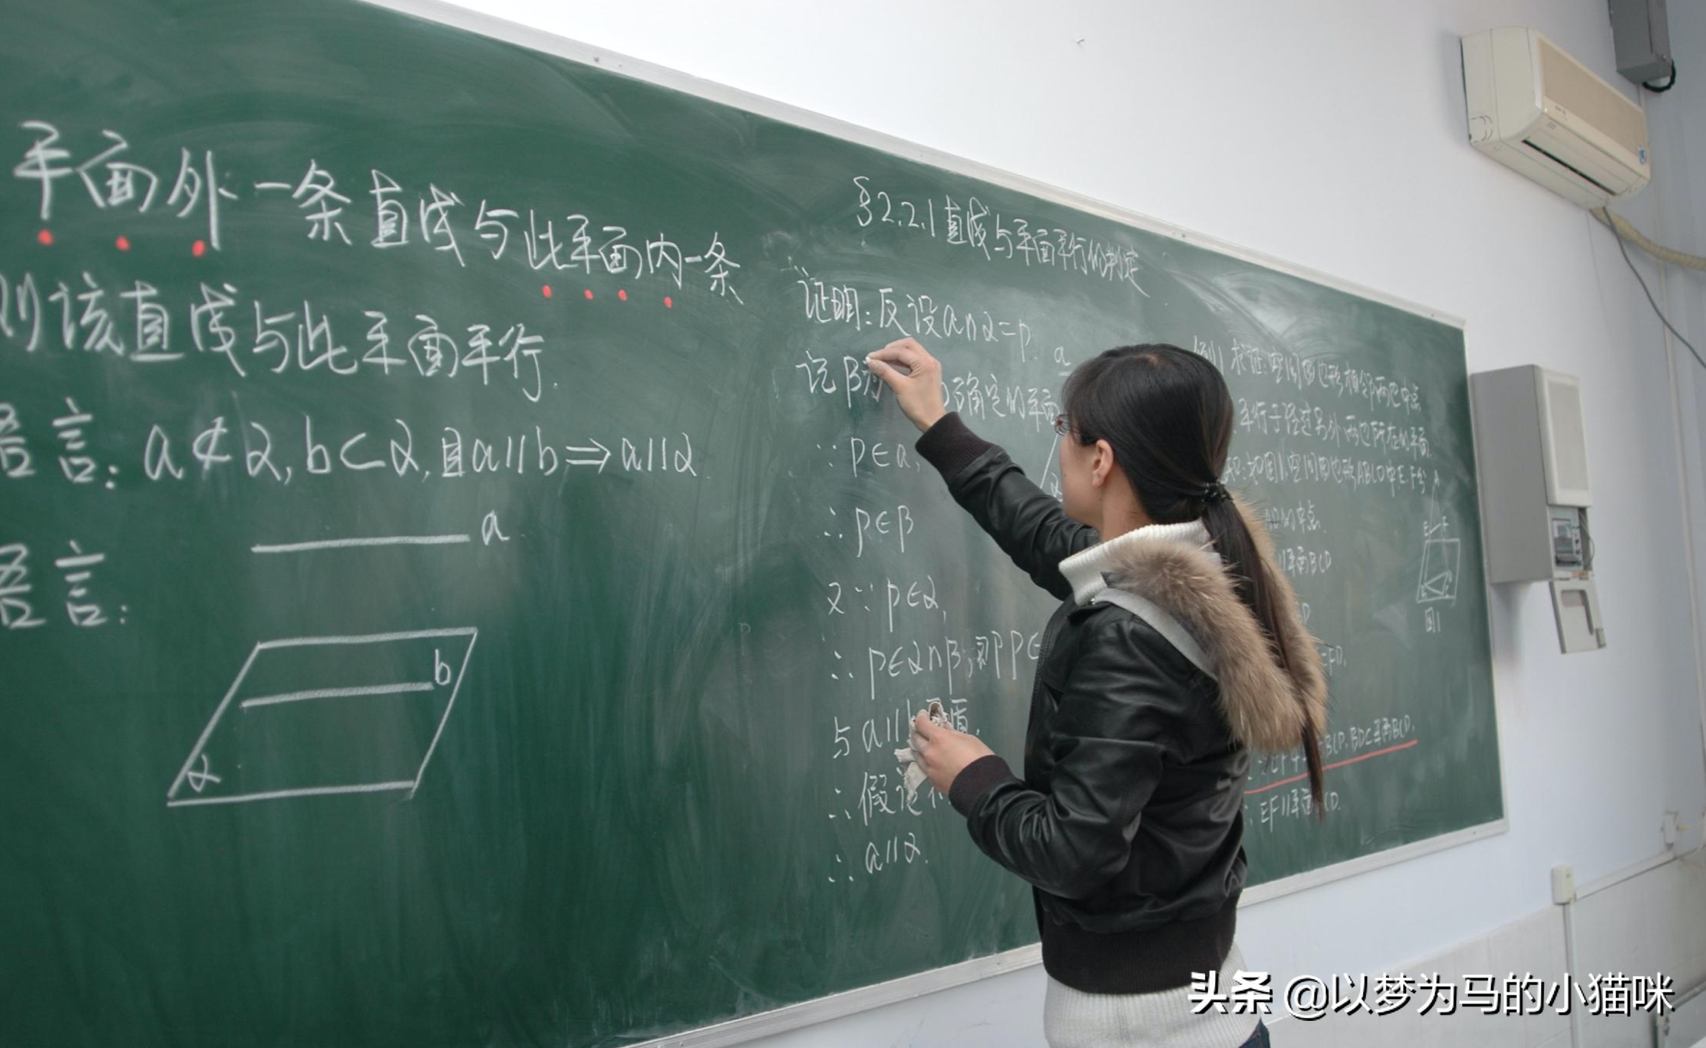 平面外一条直线与此平面内一条
则该直线与此平面平行.
语言: a⊄α, b⊂α, 且a∥b⇒a∥α
a
语言:
b
α
§2.2.1 直线与平面平行的判定
证明: 反设a∩α=P.
记β为 确定的平面
∵ P∈a,
∴ P∈β
又∵ P∈α,
∴ P∈α∩β, 即P∈
与a∥b矛盾.
∴ 假设不
∴ a∥α.
a
α
例1 求证: 空间四边形相邻两边中点
平行于经过另外两边所在的平面.
已知: 如图1, 空间四边形ABCD中E、F分
AD的中点.
∥平面BCD
E F
图1
BCD, BD⊂平面BCD.
∴ EF∥平面BCD.
头条 @以梦为马的小猫咪